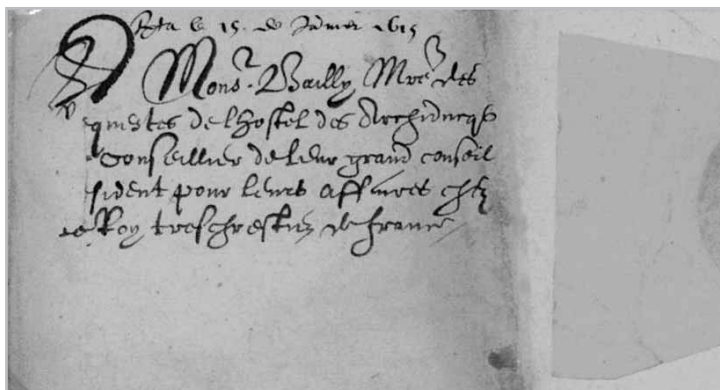 Rta le 15. de Janvier 1615
A Monsr. Bailly Mre des
Requestes de lhostel des Archiducqs
Conseillier de leur grand conseil
sident pour leurs affaires chez
le Roy treschrestien de france